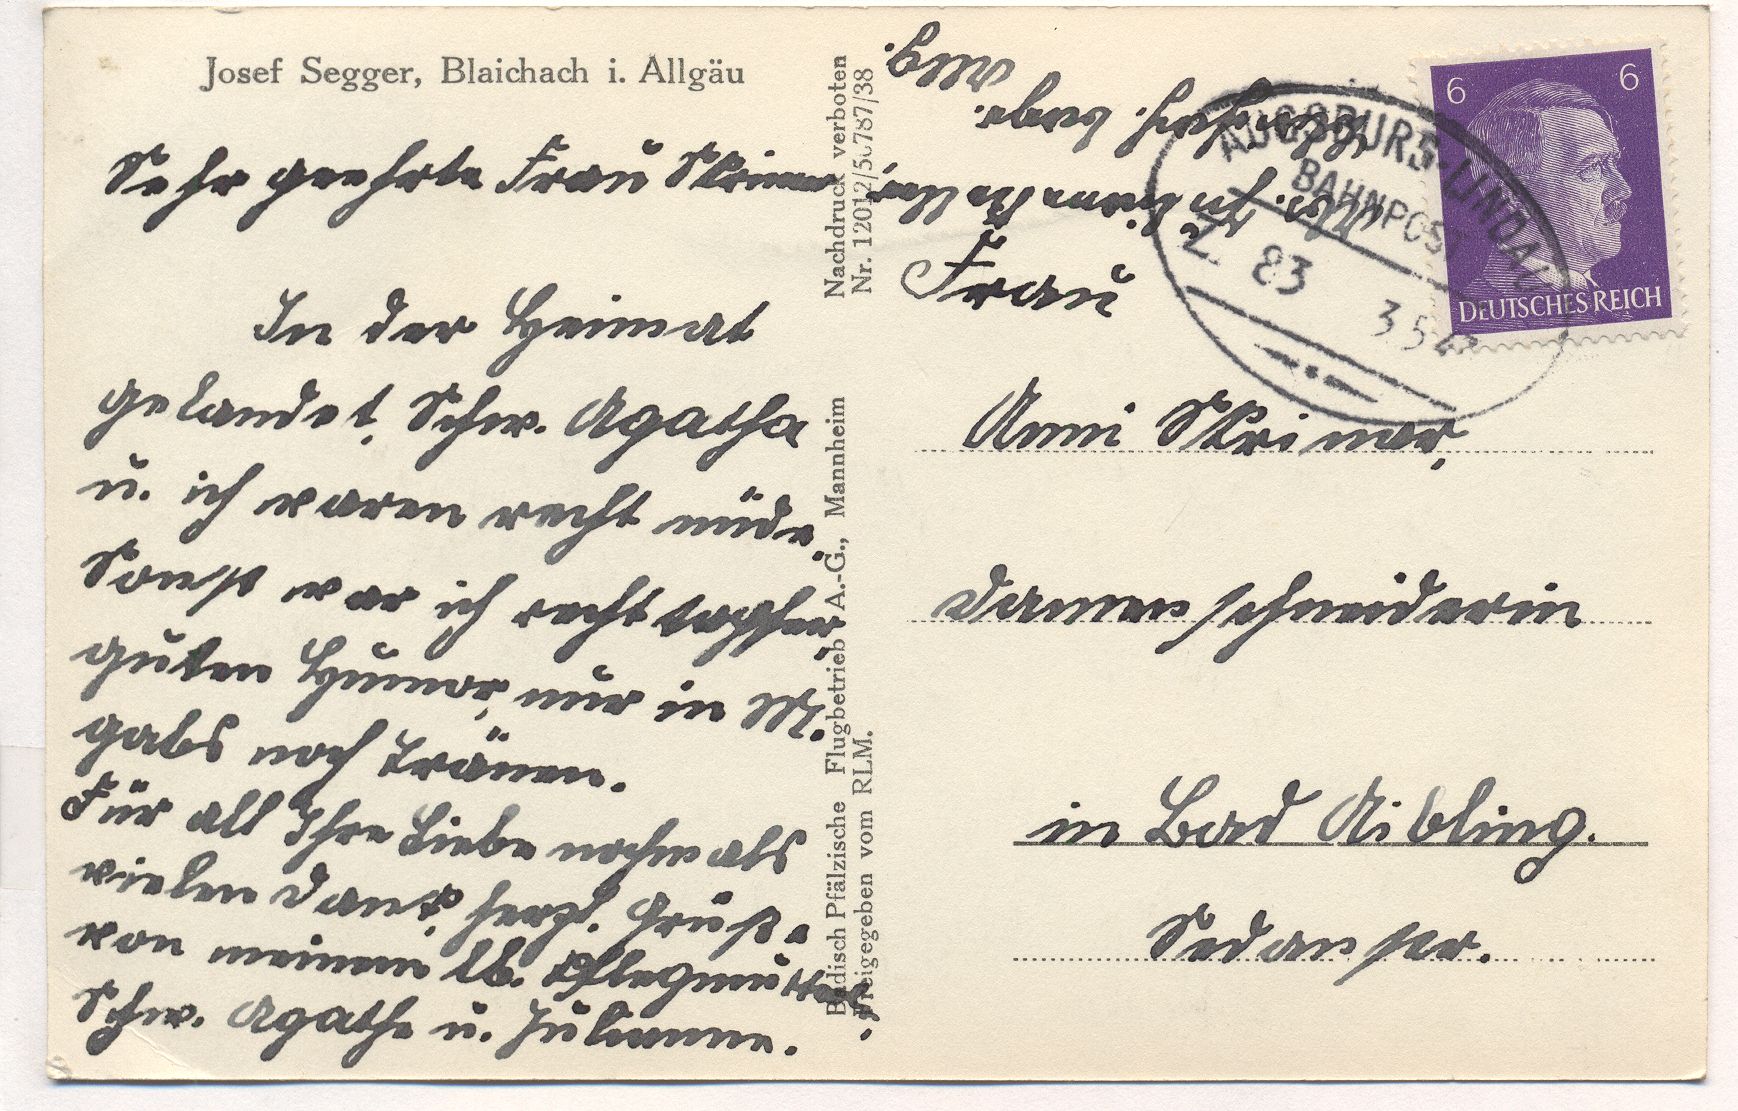 Josef Segger, Blaichach i. Allgäu
Sehr geehrte Frau Skrimer
In der Heimat
gelandet, Schw. Agatha
u. ich waren recht müde.
Sonst war ich recht tapfer
guten Humor, nur in M.
gabs noch Tränen.
Für all Ihre Liebe nochmals
vielen Dank, herzl. Grüße
von meinem lb. Pflegmutterl
Schw. Agathe u. Julianne.
Nachdruck verboten
Nr. 12012/50787/38
Badisch Pfälzische Flugbetrieb A.-G., Mannheim
Freigegeben vom RLM.
AUGSBURG-LINDAU
BAHNPOST
Z. 83
3 5 42
6 6
DEUTSCHES REICH
Frau
Anni Skrimer,
Damenschneiderin
in Bad Aibling.
Sedanstr.